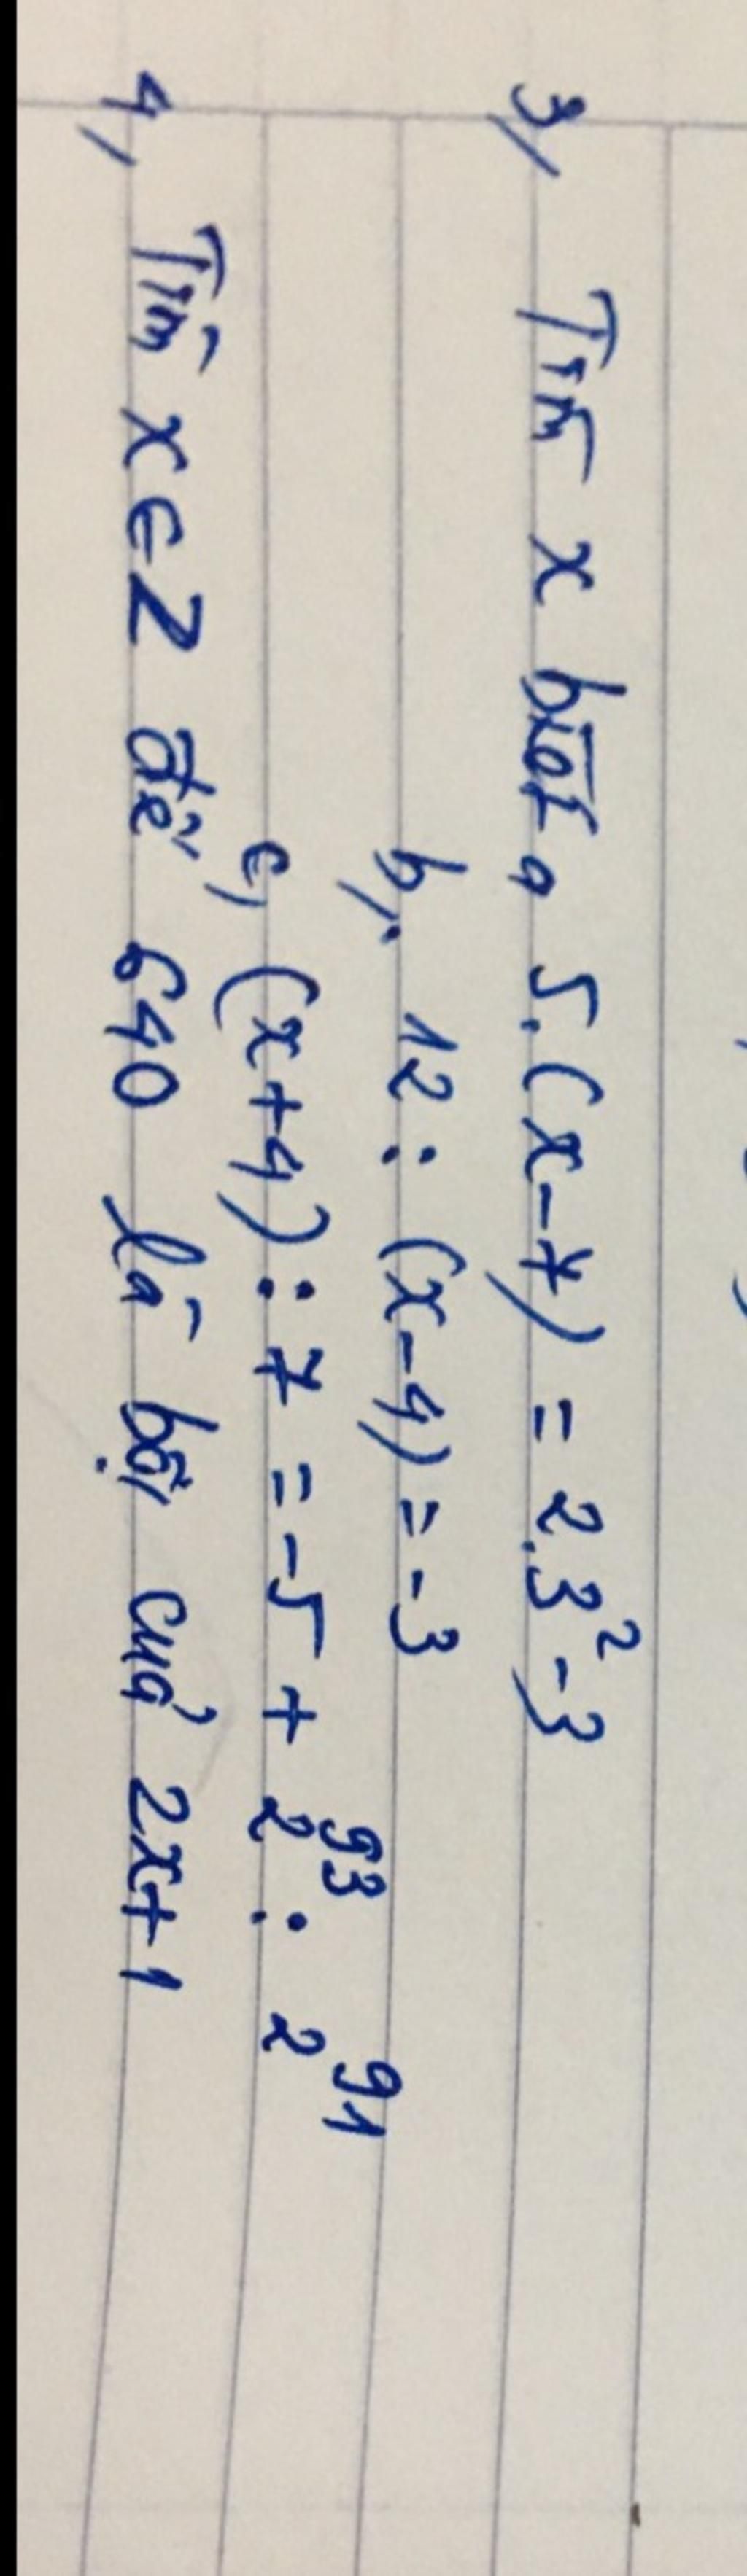 3, Tìm x biết a 5.(x-7) = 2.3²-3
b, 12 : (x-4) = -3
c, (x+4) : 7 = -5 + 2⁹³ : 2⁹¹
4, Tìm x ∈ Z để 640 là bội của 2x+1